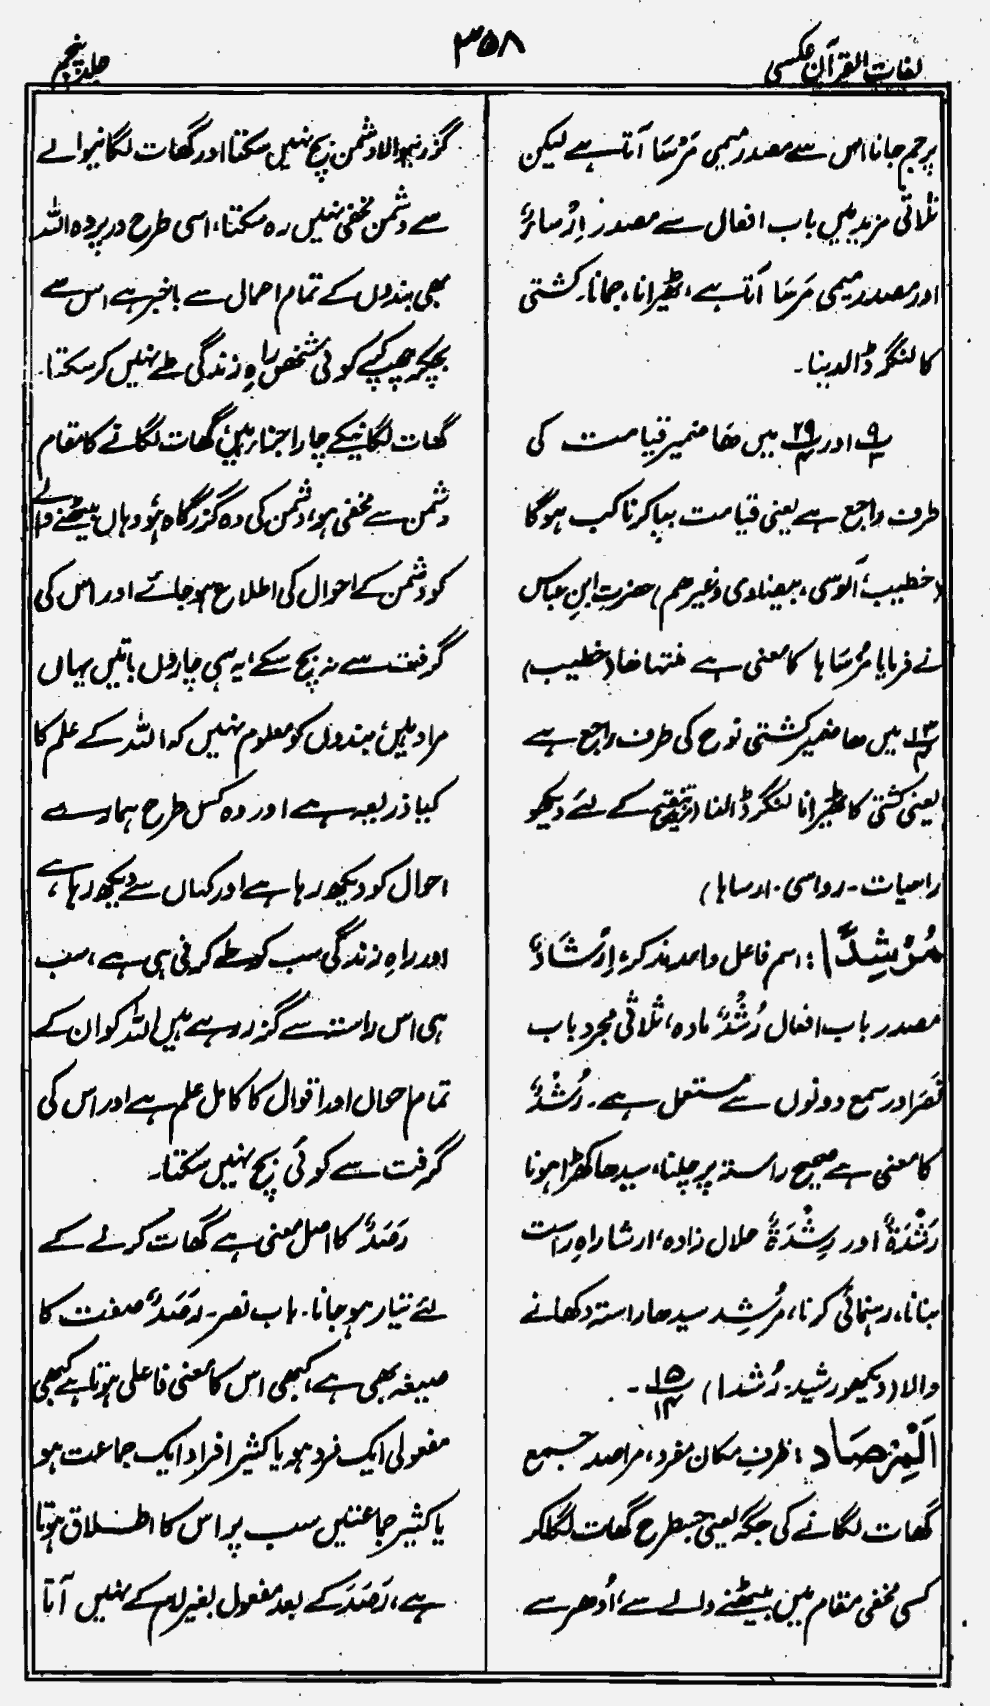 لغات القرآن عکسی
۳۵۸
جلد پنجم
پر جم جانا اس سے مصدر میمی مَرْسَا آتا ہے لیکن
ثلاثی مزید میں باب افعال سے مصدر اِرْسَاءٌ
اور مصدر میمی مُرْسَا آتا ہے، ٹھیرانا، جمانا۔ کشتی
کا لنگر ڈالدینا۔
پ۹ اور پ۲۹ میں ھَا ضمیر قیامت کی
طرف راجع ہے یعنی قیامت بپا کرنا کب ہوگا
(خطیب، آلوسی، بیضاوی وغیرھم) حضرت ابنِ عباس
نے فرمایا مُرْسَاہا کا معنی ہے منتہاھا (خطیب)
پ۱۲ میں ھا ضمیر کشتی نوح کی طرف راجع ہے
یعنی کشتی کا ٹھیرانا لنگر ڈالنا (مزید تنقیح کے لئے دیکھو
راسیات۔ رواسی۔ ارساہا)
مُرْشِدًا: اسم فاعل واحد مذکر، اِرْشَادٌ
مصدر باب افعال رُشْدٌ مادہ، ثلاثی مجرد باب
نَصَرَ اور سمع دونوں سے مستعمل ہے۔ رُشْدٌ
کا معنی ہے صحیح راستہ پر چلنا، سیدھا کھڑا ہونا
رَشْدَۃٌ اور رِشْدَۃٌ حلال زادہ، ارشاد راہِ راست
بتانا، رہنمائی کرنا، مُرشِد سیدھا راستہ دکھانے
والا (دیکھو رشید، رُشدا) پ۱۵ ۱۴۔
اَلْمِرْصَاد: ظرفِ مکان مفرد، مراصد جمع
گھات لگانے کی جگہ یعنی جسطرح گھات لگاکر
کسی مخفی مقام میں بیٹھنے والے سے، اُدھر سے
گزرنیوالا دشمن بچ نہیں سکتا اور گھات لگانیوالے
سے دشمن مخفی نہیں رہ سکتا، اسی طرح درپردہ اللہ
بھی بندوں کے تمام احوال سے باخبر ہے اس سے
بچکر چھپ کے کوئی شخص راہِ زندگی طے نہیں کر سکتا۔
گھات لگانیکے چار اجزار ہیں، گھات لگانے کا مقام
دشمن سے مخفی ہو، دشمن کی وہ گزرگاہ ہو، وہاں بیٹھنے والے
کو دشمن کے احوال کی اطلاع ہو جائے اور اس کی
گرفت سے نہ بچ سکے، یہ ہی چاروں باتیں یہاں
مراد ہیں، بندوں کو معلوم نہیں کہ اللہ کے علم کا
کیا ذریعہ ہے اور وہ کس طرح ہمارے
احوال کو دیکھ رہا ہے اور کہاں سے دیکھ رہا ہے،
اور راہِ زندگی سب کو طے کرنی ہی ہے، سب
ہی اس راستہ سے گزر رہے ہیں اللہ کو ان کے
تمام احوال اور اقوال کا کامل علم ہے اور اس کی
گرفت سے کوئی بچ نہیں سکتا۔
رَصَدٌ کا اصل معنی ہے گھات کرنے کے
لئے تیار ہو جانا۔ باب نصر۔ رَصَدٌ صفت کا
صیغہ بھی ہے، کبھی اس کا معنی فاعلی ہوتا ہے کبھی
مفعولی ایک فرد ہو یا کثیر افراد ایک جماعت ہو
یا کثیر جماعتیں سب پر اس کا اطلاق ہوتا
ہے، رَصَدَ کے بعد مفعول بغیر لام کے نہیں آتا